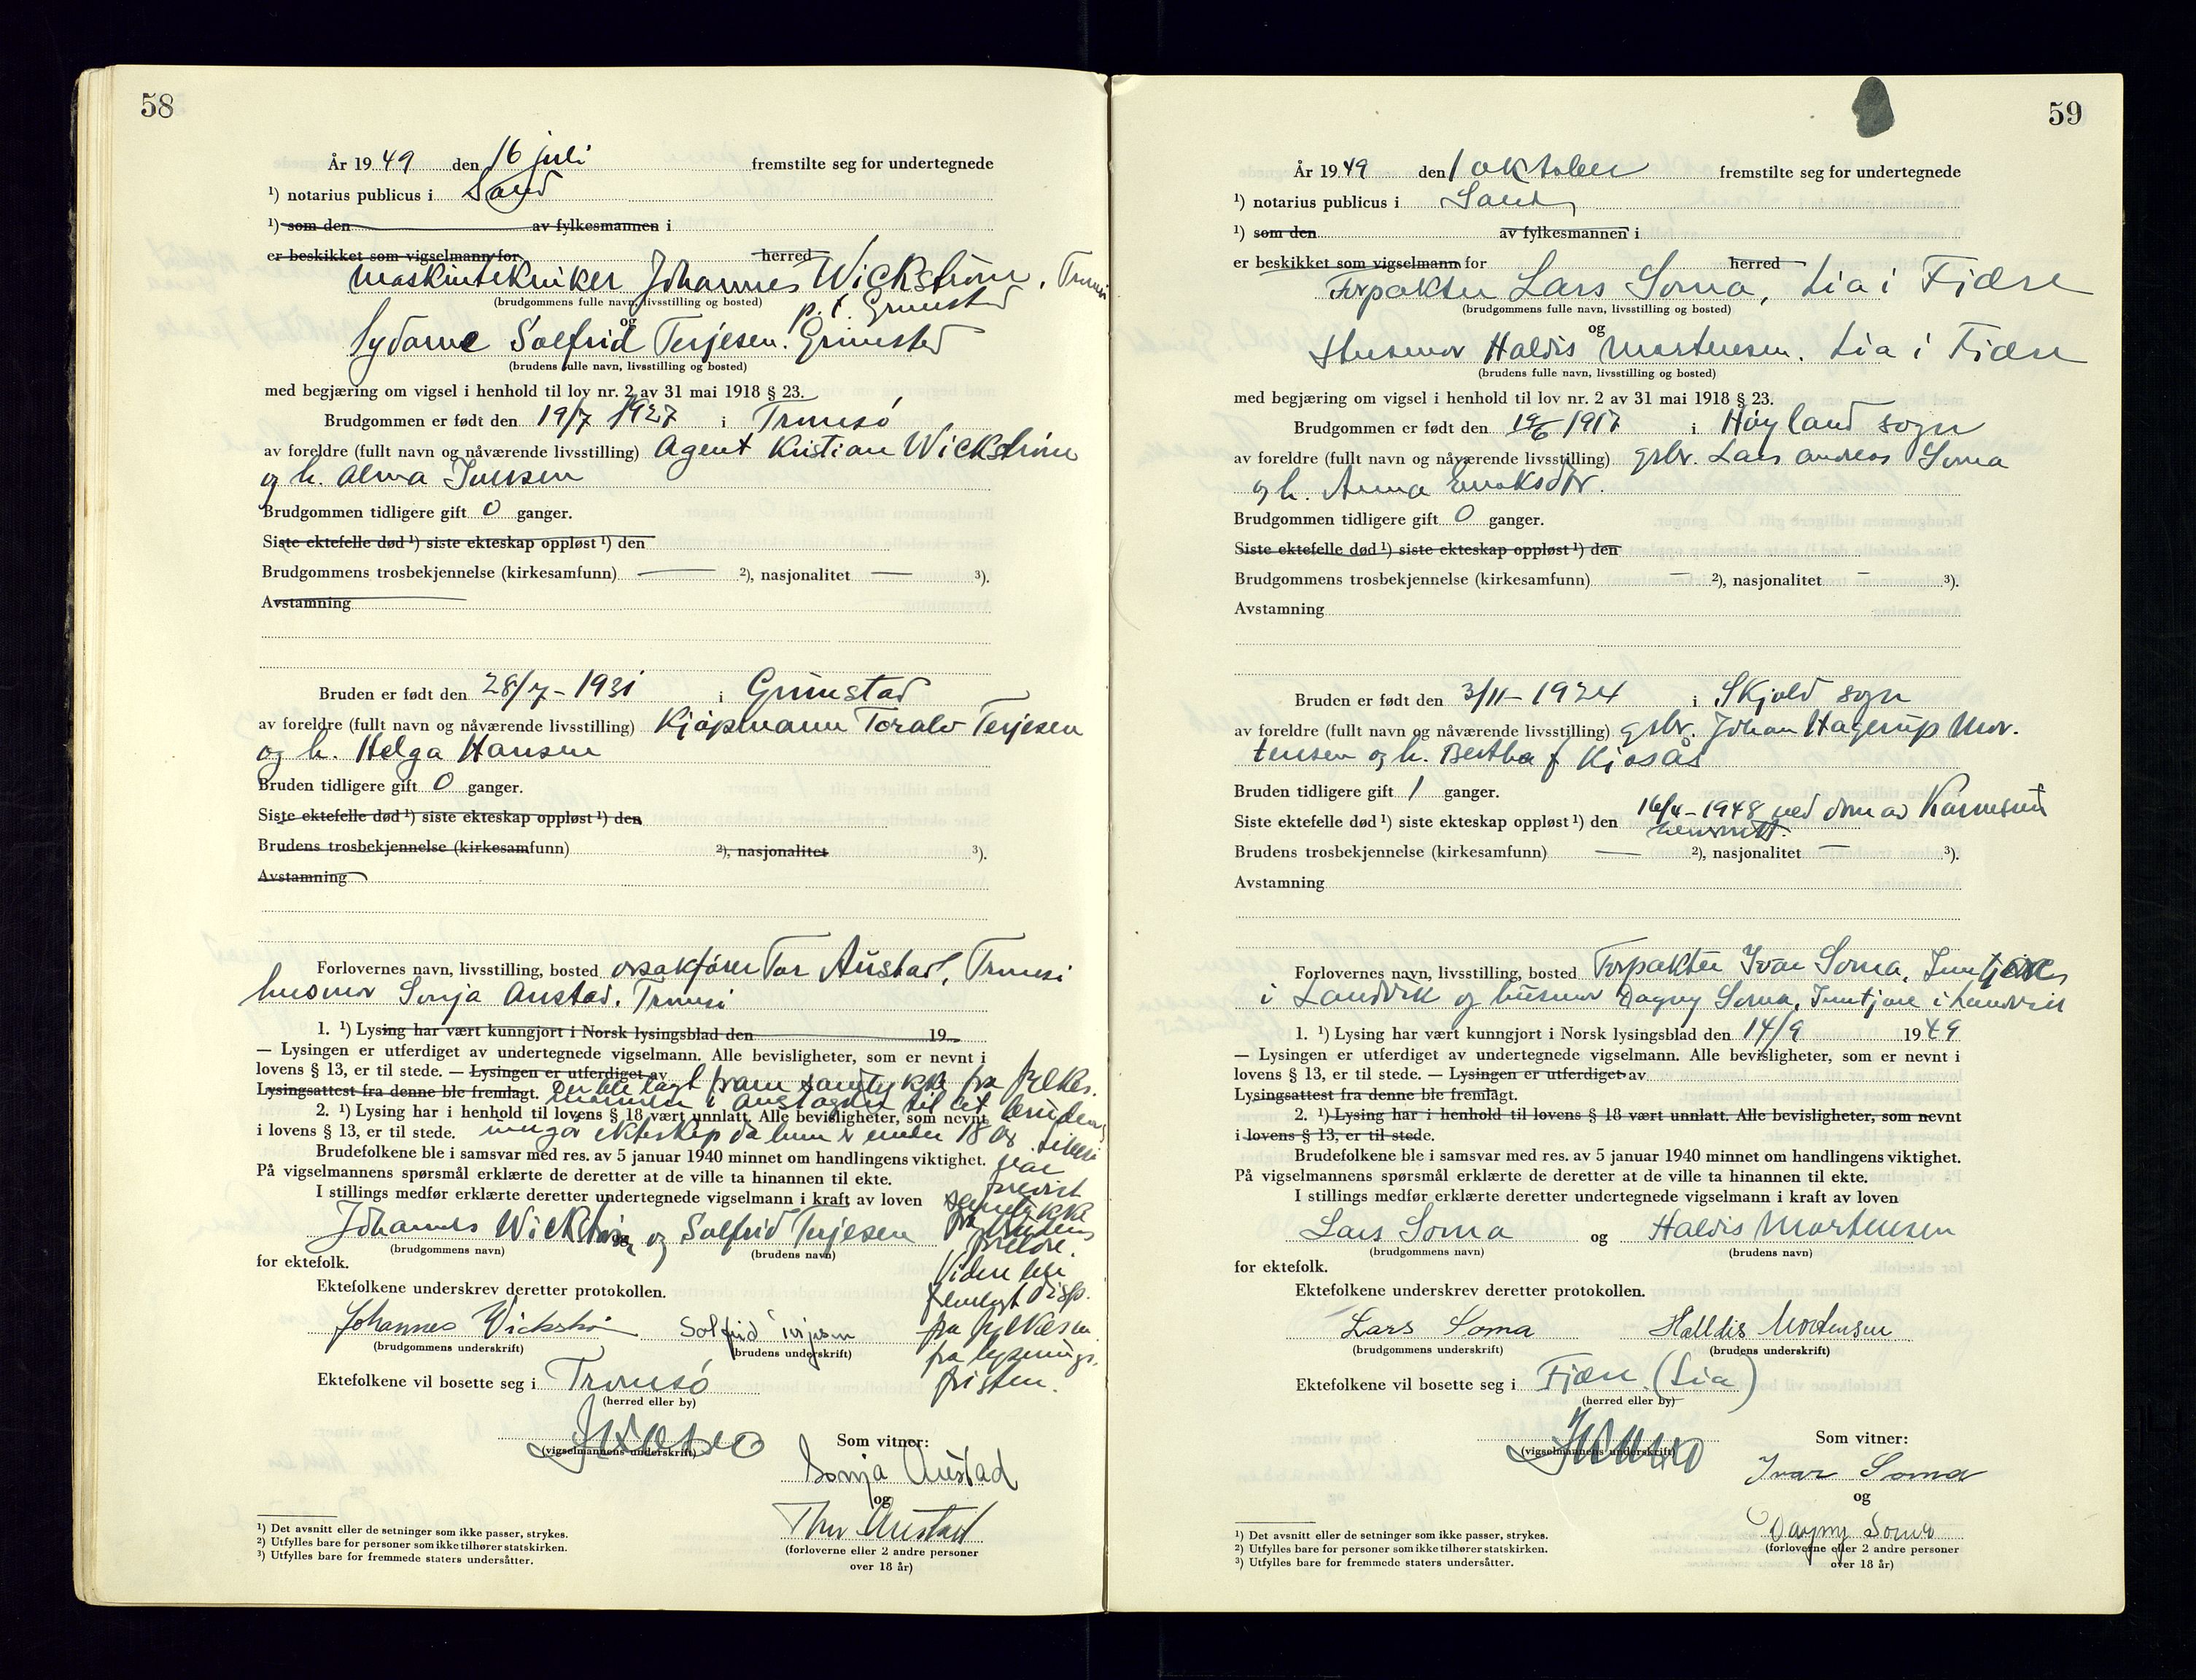 58
År 19 49 den 16 juli fremstilte seg for undertegnede
¹) notarius publicus i Sand
¹) som den av fylkesmannen i
er beskikket som vigselmann for herred
Maskintekniker Johannes Wickstrøm, Tromsø
(brudgommens fulle navn, livsstilling og bosted)
p.t. Grimstad
og
Sydame Solfrid Terjesen. Grimstad
(brudens fulle navn, livsstilling og bosted)
med begjæring om vigsel i henhold til lov nr. 2 av 31 mai 1918 § 23.
Brudgommen er født den 19/7 1927 i Tromsø
av foreldre (fullt navn og nåværende livsstilling) Agent Kristian Wickstrøm
og h. Alma Iversen
Brudgommen tidligere gift 0 ganger.
Siste ektefelle død ¹) siste ekteskap oppløst ¹) den
Brudgommens trosbekjennelse (kirkesamfunn) — ²), nasjonalitet — ³).
Avstamning
Bruden er født den 28/7 - 1931 i Grimstad
av foreldre (fullt navn og nåværende livsstilling) Kjøpmann Toralv Terjesen
og h. Helga Hansen
Bruden tidligere gift 0 ganger.
Siste ektefelle død ¹) siste ekteskap oppløst ¹) den
Brudens trosbekjennelse (kirkesamfunn) ²), nasjonalitet ³).
Avstamning
Forlovernes navn, livsstilling, bosted Tor Austad, Tromsø
husmor Sonja Austad, Tromsø
1. ¹) Lysing har vært kunngjort i Norsk lysingsblad den 19
— Lysingen er utferdiget av undertegnede vigselmann. Alle bevisligheter, som er nevnt i
lovens § 13, er til stede. — Lysingen er utferdiget av
Lysingsattest fra denne ble fremlagt. Det ble lagt fram samtykke fra fylkes-
mannen i Aust agder til at bruden
2. ¹) Lysing har i henhold til lovens § 18 vært unnlatt. Alle bevisligheter, som nevnt
i lovens § 13, er til stede. inngår ekteskap da hun er under 18 år
Brudefolkene ble i samsvar med res. av 5 januar 1940 minnet om handlingens viktighet.
På vigselmannens spørsmål erklærte de deretter at de ville ta hinannen til ekte.
I stillings medfør erklærte deretter undertegnede vigselmann i kraft av loven
samtykke
fra brudens
foreldre.
Videre ble
fremlagt disp.
fra
fra lysnings-
fristen.
Johannes Wickstrøm og Solfrid Terjesen
(brudgommens navn) (brudens navn)
for ektefolk.
Ektefolkene underskrev deretter protokollen.
Johannes Wickstrøm Solfrid Terjesen
(brudgommens underskrift) (brudens underskrift)
Ektefolkene vil bosette seg i Tromsø
(herred eller by)
(vigselmannens underskrift)
Som vitner:
Sonja Austad
og
Thor Austad
(forloverne eller 2 andre personer
over 18 år)
¹) Det avsnitt eller de setninger som ikke passer, strykes.
²) Utfylles bare for personer som ikke tilhører statskirken.
³) Utfylles bare for fremmede staters undersåtter.
59
År 19 49 den 1 oktober fremstilte seg for undertegnede
¹) notarius publicus i Sand
¹) som den av fylkesmannen i
er beskikket som vigselmann for herred
Forpakter Lars Soma, Lia i Fjære
(brudgommens fulle navn, livsstilling og bosted)
og
Husmor Haldis Mortensen. Lia i Fjære
(brudens fulle navn, livsstilling og bosted)
med begjæring om vigsel i henhold til lov nr. 2 av 31 mai 1918 § 23.
Brudgommen er født den 1917 i Høyland sogn
av foreldre (fullt navn og nåværende livsstilling) grbr. Lars Andreas Soma
og h. Anna Eriksdtr.
Brudgommen tidligere gift 0 ganger.
Siste ektefelle død ¹) siste ekteskap oppløst ¹) den
Brudgommens trosbekjennelse (kirkesamfunn) — ²), nasjonalitet — ³).
Avstamning
Bruden er født den 3/11 - 1924 i Skjold sogn
av foreldre (fullt navn og nåværende livsstilling) grbr. Johan Hagerup Mor-
tensen og h. Bertha f Kjosås
Bruden tidligere gift 1 ganger.
Siste ektefelle død ¹) siste ekteskap oppløst ¹) den 16/4 - 1948 ved dom av Karmsund
herredsrett
Brudens trosbekjennelse (kirkesamfunn) — ²), nasjonalitet — ³).
Avstamning
Forlovernes navn, livsstilling, bosted Forpakter Ivar Soma, Inntjore
i Landvik og husmor Dagny Soma, Inntjore i Landvik
1. ¹) Lysing har vært kunngjort i Norsk lysingsblad den 14/9 19 49
— Lysingen er utferdiget av undertegnede vigselmann. Alle bevisligheter, som er nevnt i
lovens § 13, er til stede. — Lysingen er utferdiget av
Lysingsattest fra denne ble fremlagt.
2. ¹) Lysing har i henhold til lovens § 18 vært unnlatt. Alle bevisligheter, som nevnt
i lovens § 13, er til stede.
Brudefolkene ble i samsvar med res. av 5 januar 1940 minnet om handlingens viktighet.
På vigselmannens spørsmål erklærte de deretter at de ville ta hinannen til ekte.
I stillings medfør erklærte deretter undertegnede vigselmann i kraft av loven
Lars Soma og Haldis Mortensen
(brudgommens navn) (brudens navn)
for ektefolk.
Ektefolkene underskrev deretter protokollen.
Lars Soma Halldis Mortensen
(brudgommens underskrift) (brudens underskrift)
Ektefolkene vil bosette seg i Fjære (Lia)
(herred eller by)
(vigselmannens underskrift)
Som vitner:
Ivar Soma
og
Dagny Soma
(forloverne eller 2 andre personer
over 18 år)
¹) Det avsnitt eller de setninger som ikke passer, strykes.
²) Utfylles bare for personer som ikke tilhører statskirken.
³) Utfylles bare for fremmede staters undersåtter.